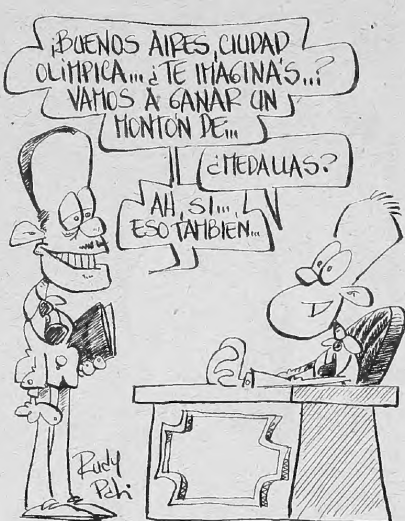 ¡BUENOS AIRES, CIUDAD
OLIMPICA... ¿TE IMAGINÁS..?
VAMOS A GANAR UN
MONTÓN DE...
¿MEDALLAS?
AH, SI...,
ESO TAMBIEN...
Rudy
Pati